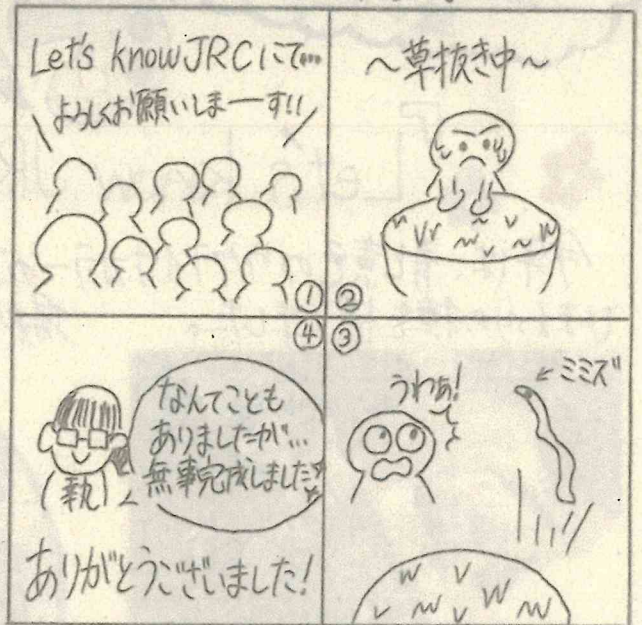 Let's know JRCにて…
よろしくお願いしまーーす!!
①
②
〜草抜き中〜
③
うわぁ!
←ミミズ
④
なんてことも
ありましたが…
無事完成しました
執
ありがとうございました!